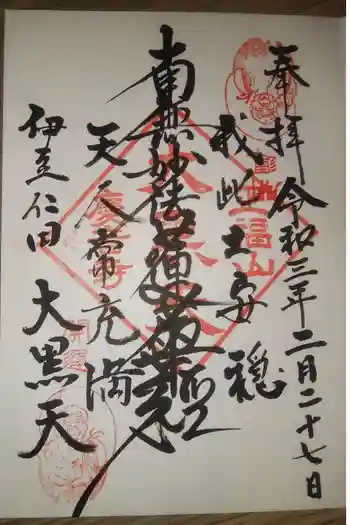 奉拝 令和三年二月二十七日
我此土安穏
南無妙法蓮華経
天人常充満
伊豆仁田 大黒天
開運